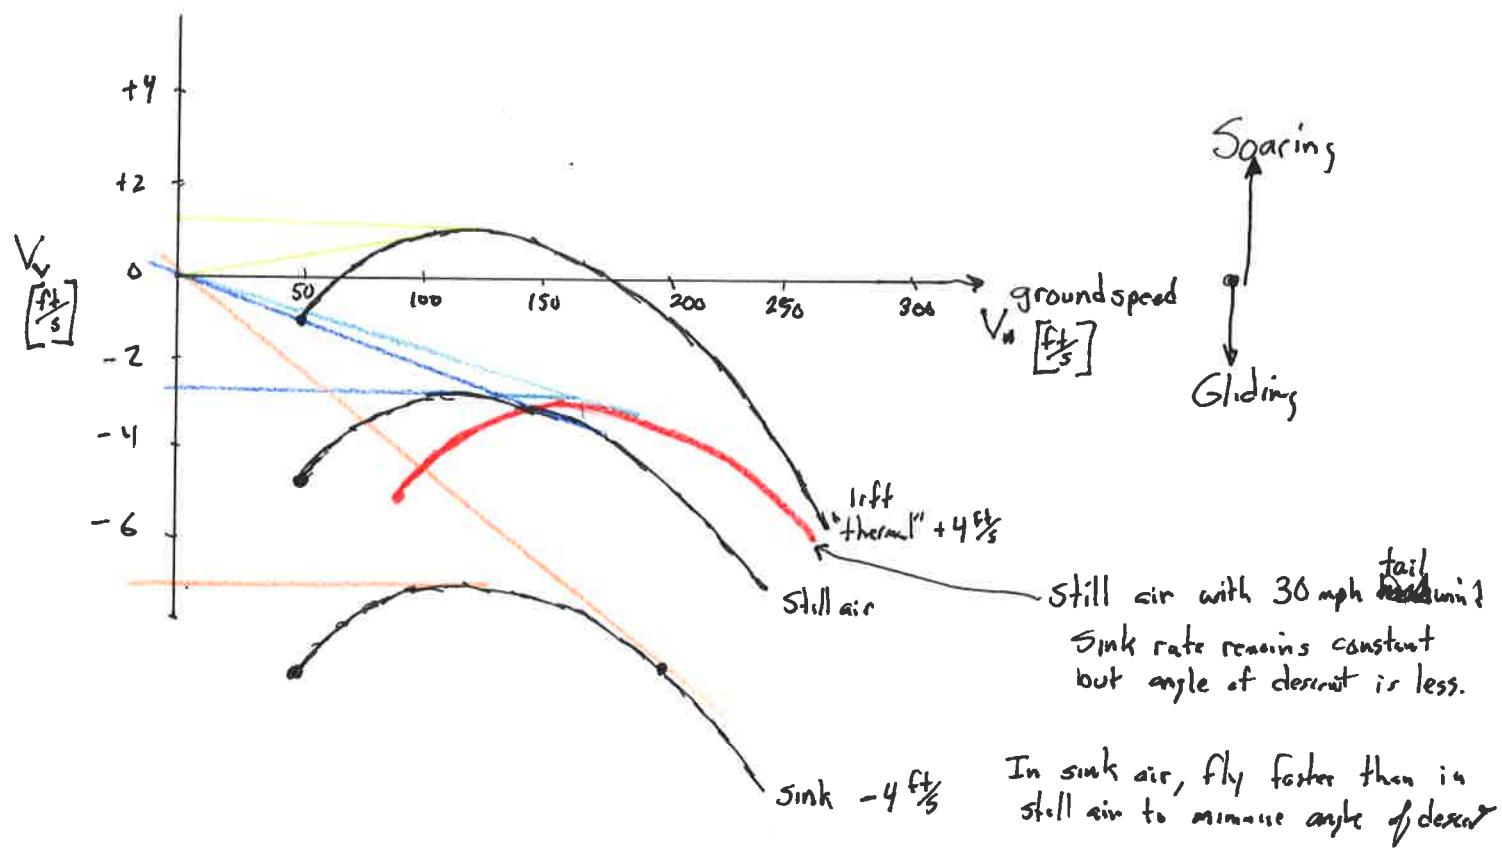 +4
Soaring
+2
Vv
[ft/s]
0
50
100
150
200
250
300
groundspeed
VH [ft/s]
-2
Gliding
-4
lift
"thermal" +4 ft/s
-6
Still air
Still air with 30 mph tail wind
Sink rate remains constant
but angle of descent is less.
Sink -4 ft/s
In sink air, fly faster than in
still air to minimize angle of descent